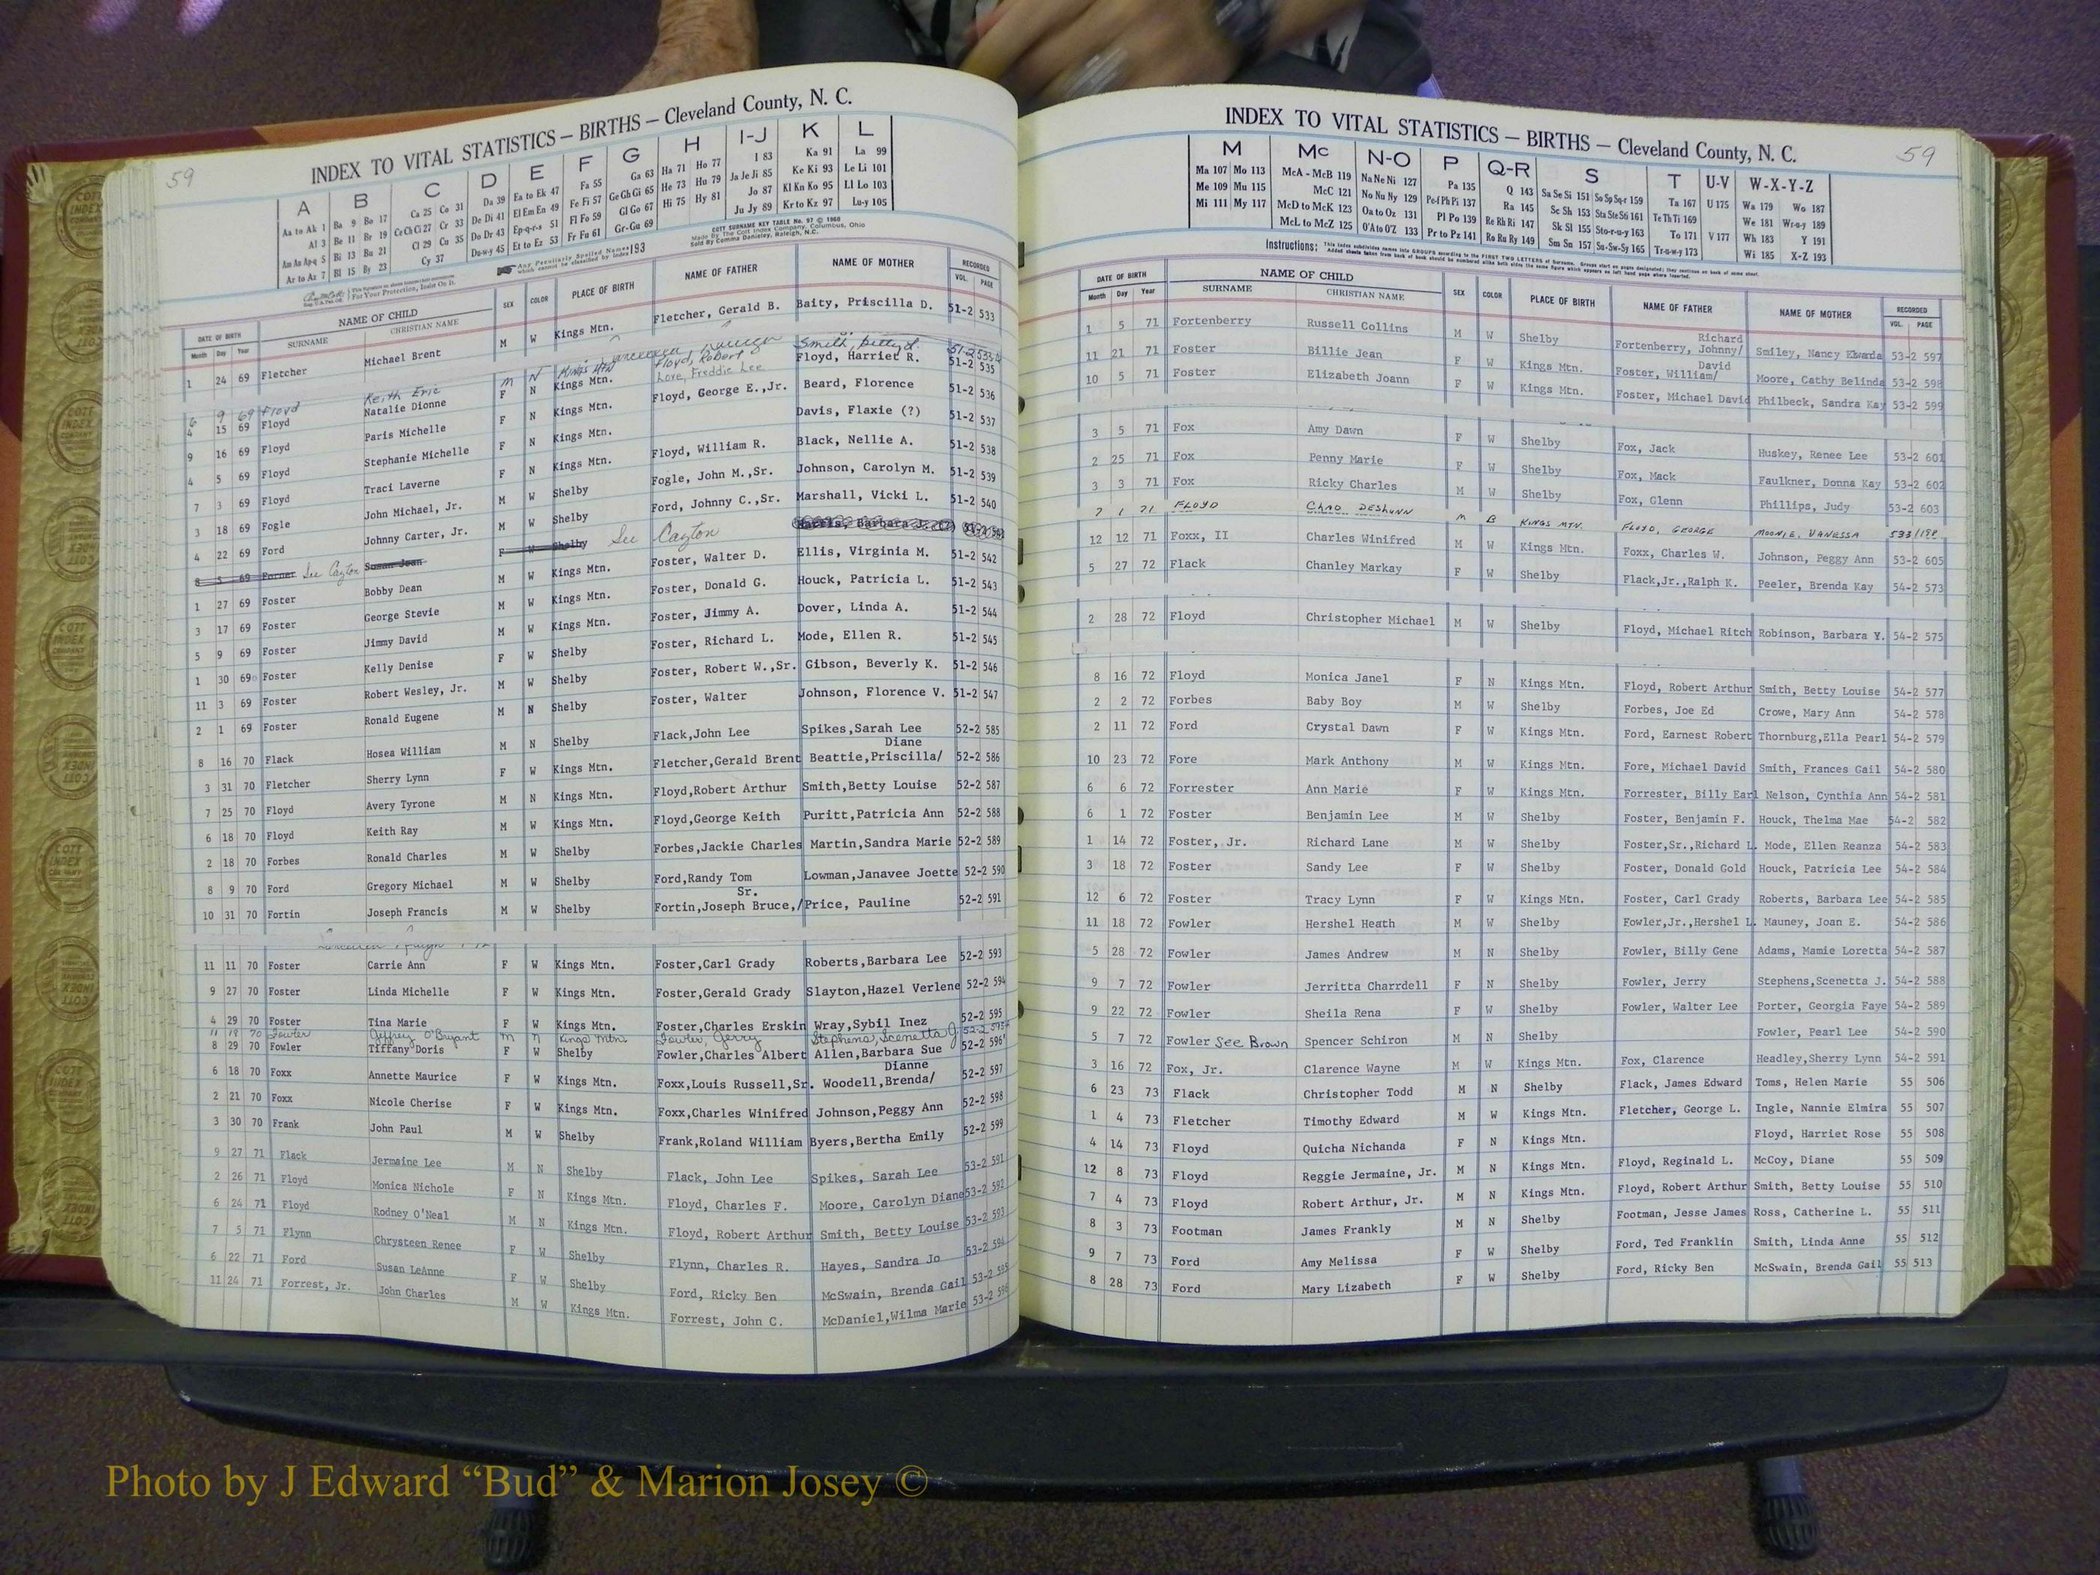 59
INDEX TO VITAL STATISTICS — BIRTHS — Cleveland County, N. C.
A B C D E F G H I-J K L
Aa to Ak 1 Ba 9 Bo 17 Ca 25 Co 31 Da 39 Ea to Ek 47 Fa 55 Ga 63 Ha 71 Ho 77 I 83 Ka 91 La 99
Al 3 Be 11 Br 19 Ce Ch Ci 27 Cr 33 De Di 41 El Em En 49 Fe Fi 57 Ge Gh Gi 65 He 73 Hu 79 Ja Je Ji 85 Ke Ki 93 Le Li 101
Am An Ap-q 5 Bi 13 Bu 21 Cl 29 Cu 35 Do Dr 43 Ep-q-r-s 51 Fl Fo 59 Gl Go 67 Hi 75 Hy 81 Jo 87 Kl Kn Ko 95 Ll Lo 103
Ar to Az 7 Bl 15 By 23 Cy 37 Du-w-y 45 Et to Ez 53 Fr Fu 61 Gr-Gu 69 Ju Jy 89 Kr to Kz 97 Lu-y 105
Any Peculiarly Spelled Names which cannot be classified by index 193
COTT SURNAME KEY TABLE No. 97 © 1968
Made by The Cott Index Company, Columbus, Ohio
Sold By Comma Danieley, Raleigh, N.C.
For Your Protection, Insist On It.
DATE OF BIRTH NAME OF CHILD SEX COLOR PLACE OF BIRTH NAME OF FATHER NAME OF MOTHER RECORDED
Month Day Year SURNAME CHRISTIAN NAME VOL. PAGE
1 24 69 Fletcher Michael Brent M W Kings Mtn. Fletcher, Gerald B. Baity, Priscilla D. 51-2 533
6 9 69 Floyd Keith Eric M N Kings Mtn Floyd, Robert Smith, Betty L.
4 15 69 Floyd Natalie Dionne F N Kings Mtn. Love, Freddie Lee Floyd, Harriet R. 51-2 535
9 16 69 Floyd Paris Michelle F N Kings Mtn. Floyd, George E.,Jr. Beard, Florence 51-2 536
4 5 69 Floyd Stephanie Michelle F N Kings Mtn. Davis, Flaxie (?) 51-2 537
7 3 69 Floyd Traci Laverne F N Kings Mtn. Floyd, William R. Black, Nellie A. 51-2 538
3 18 69 Fogle John Michael, Jr. M W Shelby Fogle, John M.,Sr. Johnson, Carolyn M. 51-2 539
4 22 69 Ford Johnny Carter, Jr. M W Shelby Ford, Johnny C.,Sr. Marshall, Vicki L. 51-2 540
8 5 69 See Cayton Susan Jean F W Shelby See Cayton Harris, Barbara J.
1 27 69 Foster Bobby Dean M W Kings Mtn. Foster, Walter D. Ellis, Virginia M. 51-2 542
3 17 69 Foster George Stevie M W Kings Mtn. Foster, Donald G. Houck, Patricia L. 51-2 543
5 9 69 Foster Jimmy David M W Kings Mtn. Foster, Jimmy A. Dover, Linda A. 51-2 544
1 30 69 Foster Kelly Denise F W Shelby Foster, Richard L. Mode, Ellen R. 51-2 545
11 3 69 Foster Robert Wesley, Jr. M W Shelby Foster, Robert W.,Sr. Gibson, Beverly K. 51-2 546
2 1 69 Foster Ronald Eugene M N Shelby Foster, Walter Johnson, Florence V. 51-2 547
8 16 70 Flack Hosea William M N Shelby Flack,John Lee Spikes,Sarah Lee 52-2 585
Diane
3 31 70 Fletcher Sherry Lynn F W Kings Mtn. Fletcher,Gerald Brent Beattie,Priscilla/ 52-2 586
7 25 70 Floyd Avery Tyrone M N Kings Mtn. Floyd,Robert Arthur Smith,Betty Louise 52-2 587
6 18 70 Floyd Keith Ray M W Kings Mtn. Floyd,George Keith Puritt,Patricia Ann 52-2 588
2 18 70 Forbes Ronald Charles M W Shelby Forbes,Jackie Charles Martin,Sandra Marie 52-2 589
8 9 70 Ford Gregory Michael M W Shelby Ford,Randy Tom Lowman,Janavee Joette 52-2 590
Sr.
10 31 70 Fortin Joseph Francis M W Shelby Fortin,Joseph Bruce,/ Price, Pauline 52-2 591
11 11 70 Foster Carrie Ann F W Kings Mtn. Foster,Carl Grady Roberts,Barbara Lee 52-2 593
9 27 70 Foster Linda Michelle F W Kings Mtn. Foster,Gerald Grady Slayton,Hazel Verlene 52-2 594
4 29 70 Foster Tina Marie F W Kings Mtn. Foster,Charles Erskin Wray,Sybil Inez 52-2 595
11 18 70 Fowler Jeffrey O'Bryant M N Kings Mtn. Fowler, Jerry Stephens, Scenetta J. 52-2 595
8 29 70 Fowler Tiffany Doris F W Shelby Fowler,Charles Albert Allen,Barbara Sue 52-2 596
Dianne
6 18 70 Foxx Annette Maurice F W Kings Mtn. Foxx,Louis Russell,Sr. Woodell,Brenda/ 52-2 597
2 21 70 Foxx Nicole Cherise F W Kings Mtn. Foxx,Charles Winifred Johnson,Peggy Ann 52-2 598
3 30 70 Frank John Paul M W Shelby Frank,Roland William Byers,Bertha Emily 52-2 599
9 27 71 Flack Jermaine Lee M N Shelby Flack, John Lee Spikes, Sarah Lee 53-2 591
2 26 71 Floyd Monica Nichole F N Kings Mtn. Floyd, Charles F. Moore, Carolyn Diane 53-2 592
6 24 71 Floyd Rodney O'Neal M N Kings Mtn. Floyd, Robert Arthur Smith, Betty Louise 53-2 593
7 5 71 Flynn Chrysteen Renee F W Shelby Flynn, Charles R. Hayes, Sandra Jo 53-2 594
6 22 71 Ford Susan LeAnne F W Shelby Ford, Ricky Ben McSwain, Brenda Gail 53-2 595
11 24 71 Forrest, Jr. John Charles M W Kings Mtn. Forrest, John C. McDaniel,Wilma Marie 53-2 596
INDEX TO VITAL STATISTICS — BIRTHS — Cleveland County, N. C.
59
M Mc N-O P Q-R S T U-V W-X-Y-Z
Ma 107 Mo 113 McA - McB 119 Na Ne Ni 127 Pa 135 Q 143 Sa Se Si 151 So Sp Sq-r 159 Ta 167 U 175 Wa 179 Wo 187
Me 109 Mu 115 McC 121 No Nu Ny 129 Pe-f Ph Pi 137 Ra 145 Sc Sh 153 Sta Ste Sti 161 Te Th Ti 169 We 181 Wr-u-y 189
Mi 111 My 117 McD to McK 123 Oa to Oz 131 Pl Po 139 Re Rh Ri 147 Sk Sl 155 Sto-r-u-y 163 To 171 V 177 Wh 183 Y 191
McL to McZ 125 O'A to O'Z 133 Pr to Pz 141 Ro Ru Ry 149 Sm Sn 157 Su-Sw-Sy 165 Tr-u-w-y 173 Wi 185 X-Z 193
Instructions: This index subdivides names into GROUPS according to the FIRST TWO LETTERS of Surname. Groups start on pages designated; they continue on back of same sheet.
Added sheets taken from back of book should be numbered alike both sides the same figure which appears on left hand page where inserted.
DATE OF BIRTH NAME OF CHILD SEX COLOR PLACE OF BIRTH NAME OF FATHER NAME OF MOTHER RECORDED
Month Day Year SURNAME CHRISTIAN NAME VOL. PAGE
Richard
1 5 71 Fortenberry Russell Collins M W Shelby Fortenberry, Johnny/ Smiley, Nancy Edwards 53-2 597
David
11 21 71 Foster Billie Jean F W Kings Mtn. Foster, William/ Moore, Cathy Belinda 53-2 598
10 5 71 Foster Elizabeth Joann F W Kings Mtn. Foster, Michael David Philbeck, Sandra Kay 53-2 599
3 5 71 Fox Amy Dawn F W Shelby Fox, Jack Huskey, Renee Lee 53-2 601
2 25 71 Fox Penny Marie F W Shelby Fox, Mack Faulkner, Donna Kay 53-2 602
3 3 71 Fox Ricky Charles M W Shelby Fox, Glenn Phillips, Judy 53-2 603
7 1 71 FLOYD CHAD DESHUNN M B KINGS MTN. FLOYD, GEORGE MOONIE, VANESSA 533/198
12 12 71 Foxx, II Charles Winifred M W Kings Mtn. Foxx, Charles W. Johnson, Peggy Ann 53-2 605
5 27 72 Flack Chanley Markay F W Shelby Flack,Jr.,Ralph K. Peeler, Brenda Kay 54-2 573
2 28 72 Floyd Christopher Michael M W Shelby Floyd, Michael Ritch Robinson, Barbara Y. 54-2 575
8 16 72 Floyd Monica Janel F N Kings Mtn. Floyd, Robert Arthur Smith, Betty Louise 54-2 577
2 2 72 Forbes Baby Boy M W Shelby Forbes, Joe Ed Crowe, Mary Ann 54-2 578
2 11 72 Ford Crystal Dawn F W Kings Mtn. Ford, Earnest Robert Thornburg,Ella Pearl 54-2 579
10 23 72 Fore Mark Anthony M W Kings Mtn. Fore, Michael David Smith, Frances Gail 54-2 580
6 6 72 Forrester Ann Marie F W Kings Mtn. Forrester, Billy Earl Nelson, Cynthia Ann 54-2 581
6 1 72 Foster Benjamin Lee M W Shelby Foster, Benjamin F. Houck, Thelma Mae 54-2 582
1 14 72 Foster, Jr. Richard Lane M W Shelby Foster,Sr.,Richard L. Mode, Ellen Reanza 54-2 583
3 18 72 Foster Sandy Lee F W Shelby Foster, Donald Gold Houck, Patricia Lee 54-2 584
12 6 72 Foster Tracy Lynn F W Kings Mtn. Foster, Carl Grady Roberts, Barbara Lee 54-2 585
11 18 72 Fowler Hershel Heath M W Shelby Fowler,Jr.,Hershel L. Mauney, Joan E. 54-2 586
5 28 72 Fowler James Andrew M N Shelby Fowler, Billy Gene Adams, Mamie Loretta 54-2 587
9 7 72 Fowler Jerritta Charrdell F N Shelby Fowler, Jerry Stephens,Scenetta J. 54-2 588
9 22 72 Fowler Sheila Rena F W Shelby Fowler, Walter Lee Porter, Georgia Faye 54-2 589
5 7 72 Fowler See Brown Spencer Schiron M N Shelby Fowler, Pearl Lee 54-2 590
3 16 72 Fox, Jr. Clarence Wayne M W Kings Mtn. Fox, Clarence Headley,Sherry Lynn 54-2 591
6 23 73 Flack Christopher Todd M N Shelby Flack, James Edward Toms, Helen Marie 55 506
1 4 73 Fletcher Timothy Edward M W Kings Mtn. Fletcher, George L. Ingle, Nannie Elmira 55 507
4 14 73 Floyd Quicha Nichanda F N Kings Mtn. Floyd, Harriet Rose 55 508
12 8 73 Floyd Reggie Jermaine, Jr. M N Kings Mtn. Floyd, Reginald L. McCoy, Diane 55 509
7 4 73 Floyd Robert Arthur, Jr. M N Kings Mtn. Floyd, Robert Arthur Smith, Betty Louise 55 510
8 3 73 Footman James Frankly M N Shelby Footman, Jesse James Ross, Catherine L. 55 511
9 7 73 Ford Amy Melissa F W Shelby Ford, Ted Franklin Smith, Linda Anne 55 512
8 28 73 Ford Mary Lizabeth F W Shelby Ford, Ricky Ben McSwain, Brenda Gail 55 513
Photo by J Edward “Bud” & Marion Josey ©